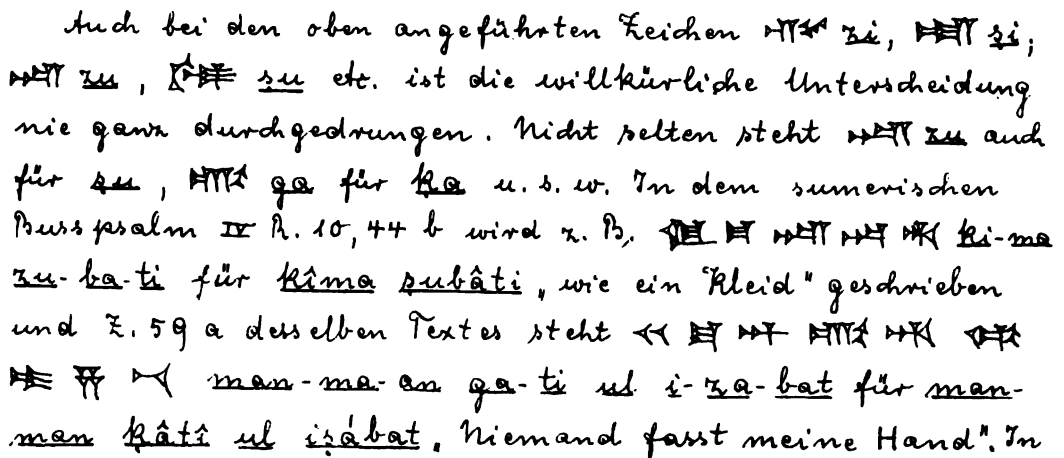 Auch bei den oben angeführten Zeichen zi, ṣi;
zu, ṣu etc. ist die willkürliche Unterscheidung
nie ganz durchgedrungen. Nicht selten steht zu auch
für ṣu, ga für ḳa u. s. w. In dem sumerischen
Busspsalm IV R. 10, 44 b wird z. B. ki-ma
zu-ba-ti für kîma ṣubâti „wie ein Kleid" geschrieben
und Z. 59 a desselben Textes steht
man-ma-an ga-ti ul i-za-bat für man-
man ḳâtî ul iṣábat „Niemand fasst meine Hand". In